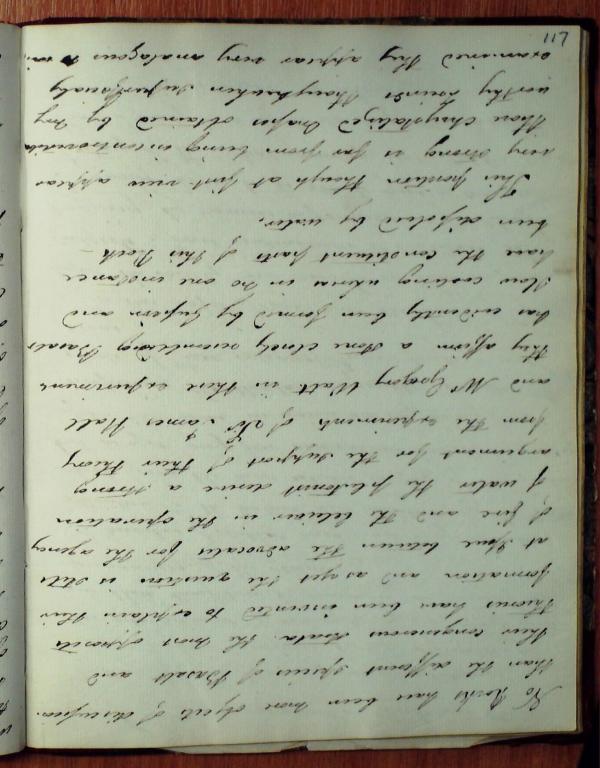 117
No Rocks have been more objects of discussion
than the different species of Basalt and
their congenerous strata. the most opposite
Theories have been invented to explain their
formation and as yet the question is still
at issue between the advocates for the agency
of fire and the believer in the operation
of water the plutonist derive a strong
argument for the support of their theory
from the experiments of Sir James Hall
and Mr Gregory Watt in these experiments
they affirm a stone closely resembling Basalt
has evidently been formed by fusion and
slow cooling whereas in no one instance
have the constituent parts of this Rock
been deposited by water.
This position though at first view appear
very strong is far from being incontrovertible
those chrystalized masses obtained by my
worthy friends though when superficially
examined they appear very analagous to